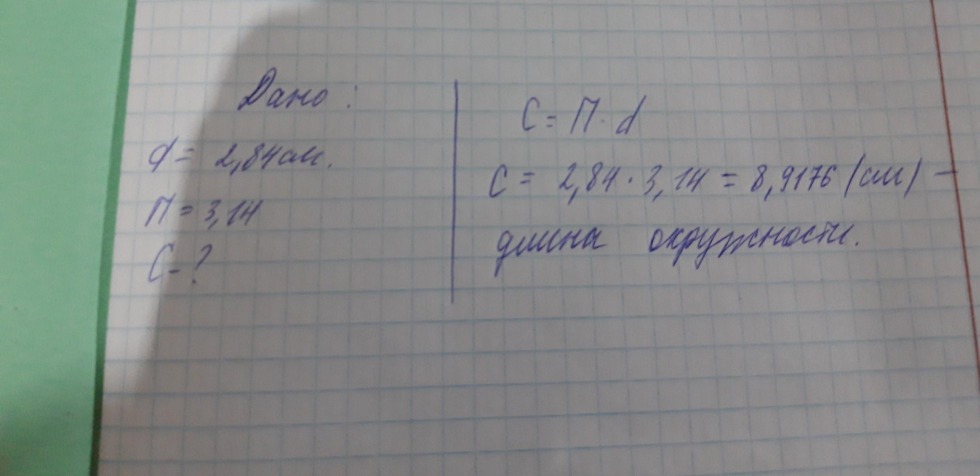 Дано:
d = 2,84 см.
П = 3,14
C - ?
C = П · d
C = 2,84 · 3,14 = 8,9176 (см) –
длина окружности.